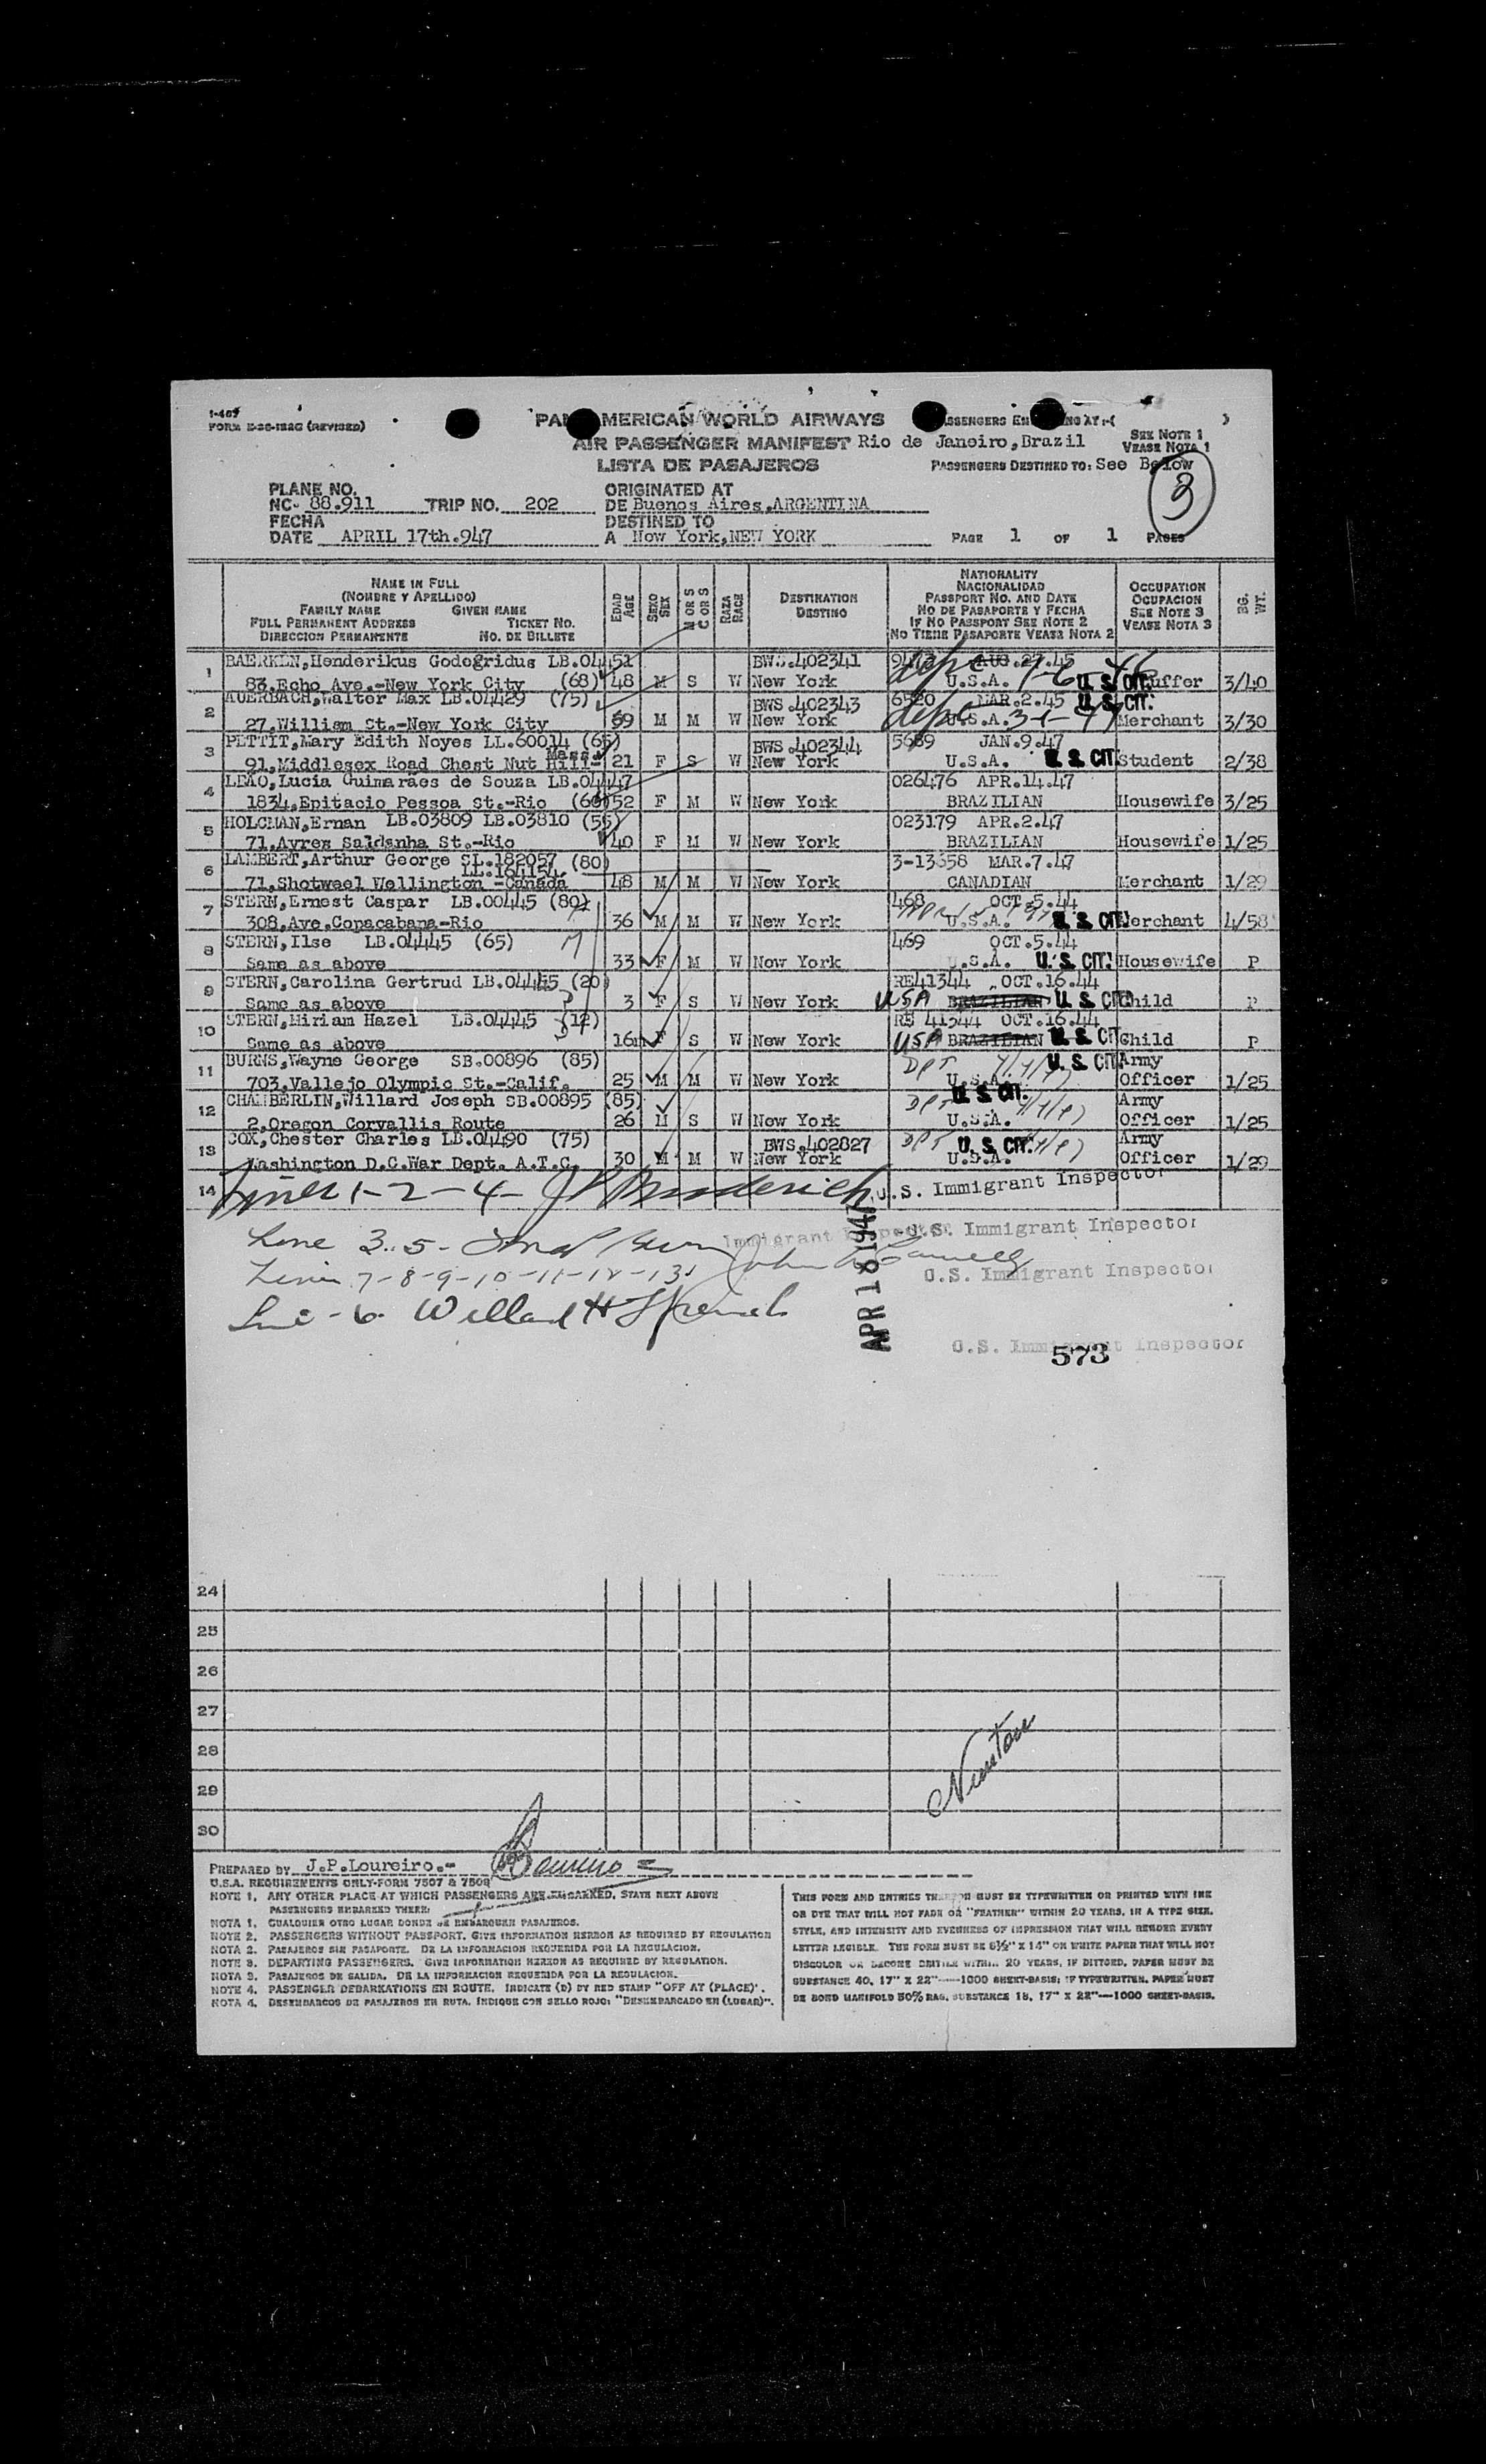 I-467
FORM E-36-122G (REVISED)
PAN AMERICAN WORLD AIRWAYS
AIR PASSENGER MANIFEST Rio de Janeiro, Brazil
SEE NOTE 1
VEASE NOTA 1
LISTA DE PASAJEROS PASSENGERS DESTINED TO: See Below
3
PLANE NO. ORIGINATED AT
NC- 88.911 TRIP NO. 202 DE Buenos Aires, ARGENTINA
FECHA DESTINED TO
DATE APRIL 17th.947 A New York, NEW YORK PAGE 1 OF 1 PAGES
NAME IN FULL
(NOMBRE Y APELLIDO)
FAMILY NAME GIVEN NAME
FULL PERMANENT ADDRESS TICKET NO.
DIRECCION PERMANENTE NO. DE BILLETE
EDAD AGE
SEXO SEX
M OR S C OR S
RAZA RACE
DESTINATION DESTINO
NATIONALITY
NACIONALIDAD
PASSPORT NO. AND DATE
NO DE PASAPORTE Y FECHA
IF NO PASSPORT SEE NOTE 2
NO TIENE PASAPORTE VEASE NOTA 2
OCCUPATION
OCUPACION
SEE NOTE 3
VEASE NOTA 3
BG. WT.
1 BAERKEN, Henderikus Godegridus LB.04451 BWS.402341 AUG.27.45
83, Echo Ave.-New York City (68) 48 M S W New York U.S.A. U. S. CIT. 3/40
2 AUERBACH, Walter Max LB.04429 (75) BWS.402343 6520 MAR.2.45 U. S. CIT.
27, William St.-New York City 59 M M W New York U.S.A. Merchant 3/30
3 PETTIT, Mary Edith Noyes LL.60014 (65) BWS.402344 5689 JAN.9.47
91, Middlesex Road Chest Nut Hill- Mass. 21 F S W New York U.S.A. U. S. CIT. Student 2/38
4 LEAO, Lucia Guimarães de Souza LB.04447 026476 APR.14.47
1834, Epitacio Pessoa St.-Rio (60) 52 F M W New York BRAZILIAN Housewife 3/25
5 HOLCMAN, Ernan LB.03809 LB.03810 (55) 023179 APR.2.47
71, Ayres Saldanha St.-Rio 40 F M W New York BRAZILIAN Housewife 1/25
6 LAMBERT, Arthur George SL.182057 (80) 3-13658 MAR.7.47
LL.164154
71, Shotweel Wellington -Canada 48 M M W New York CANADIAN Merchant 1/29
7 STERN, Ernest Caspar LB.00445 (80) 468 OCT.5.44
308, Ave. Copacabana-Rio 36 M M W New York U.S.A. U. S. CIT. Merchant 4/58
8 STERN, Ilse LB.04445 (65) 469 OCT.5.44
Same as above 33 F M W New York U.S.A. U. S. CIT. Housewife P
9 STERN, Carolina Gertrud LB.04445 (20) RE41344 OCT.16.44
Same as above 3 F S W New York USA BRAZILIAN U. S. CIT. Child P
10 STERN, Miriam Hazel LB.04445 (12) RE 41344 OCT.16.44
Same as above 16m F S W New York USA BRAZILIAN U. S. CIT Child P
11 BURNS, Wayne George SB.00896 (85) U. S. CIT Army
703, Vallejo Olympic St.-Calif. 25 M M W New York U.S.A. Officer 1/25
12 CHAMBERLIN, Willard Joseph SB.00895 (85) U. S. CIT. Army
2, Oregon Corvallis Route 26 M S W New York U.S.A. Officer 1/25
13 COX, Chester Charles LB.04490 (75) BWS.402827 U. S. CIT. Army
Washington D.C. War Dept. A.T.C. 30 M M W New York U.S.A. Officer 1/29
14 Lines 1-2-4- Broderick U.S. Immigrant Inspector
Line 3-5- U.S. Immigrant Inspector
Lines 7-8-9-10-11-12-13 John U.S. Immigrant Inspector
Line - 6. Willard H
APR 18 1947
U.S. Immigrant Inspector
573
24
25
26
27
28
29
30
PREPARED BY J.P.Loureiro.-
U.S.A. REQUIREMENTS ONLY-FORM 7507 & 7509
NOTE 1. ANY OTHER PLACE AT WHICH PASSENGERS ARE EMBARKED, STATE NEXT ABOVE
PASSENGERS EMBARKED THERE.
NOTA 1. CUALQUIER OTRO LUGAR DONDE SE EMBARQUEN PASAJEROS.
NOTE 2. PASSENGERS WITHOUT PASSPORT. GIVE INFORMATION HEREON AS REQUIRED BY REGULATION
NOTA 2. PASAJEROS SIN PASAPORTE. DE LA INFORMACION REQUERIDA POR LA REGULACION.
NOTE 3. DEPARTING PASSENGERS. GIVE INFORMATION HEREON AS REQUIRED BY REGULATION.
NOTA 3. PASAJEROS DE SALIDA. DE LA INFORMACION REQUERIDA POR LA REGULACION.
NOTE 4. PASSENGER DEBARKATIONS EN ROUTE. INDICATE (D) BY RED STAMP "OFF AT (PLACE)".
NOTA 4. DESEMBARCOS DE PASAJEROS EN RUTA. INDIQUE CON SELLO ROJO: "DESEMBARCADO EN (LUGAR)".
THIS FORM AND ENTRIES THEREON MUST BE TYPEWRITTEN OR PRINTED WITH INK
OR DYE THAT WILL NOT FADE OR "FEATHER" WITHIN 20 YEARS, IN A TYPE SIZE,
STYLE, AND INTENSITY AND EVENNESS OF IMPRESSION THAT WILL RENDER EVERY
LETTER LEGIBLE. THE FORM MUST BE 8½" X 14" ON WHITE PAPER THAT WILL NOT
DISCOLOR OR BECOME BRITTLE WITHIN 20 YEARS, IF DITTOED, PAPER MUST BE
SUBSTANCE 40, 17" X 22"—1000 SHEET-BASIS; IF TYPEWRITTEN, PAPER MUST
BE BOND MANIFOLD 50% RAG, SUBSTANCE 16, 17" X 22"—1000 SHEET-BASIS.